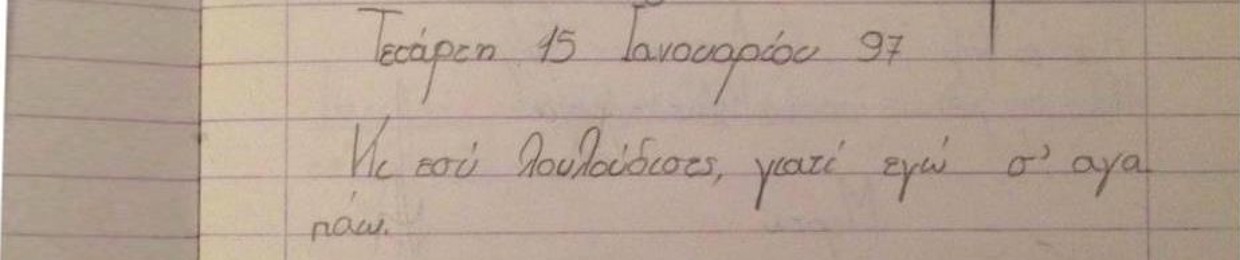 Τεσάρτη 15 Ιανουαρίου 97
Κι εσύ λουλούδισες, γιατί εγώ σ' αγα
πάω.